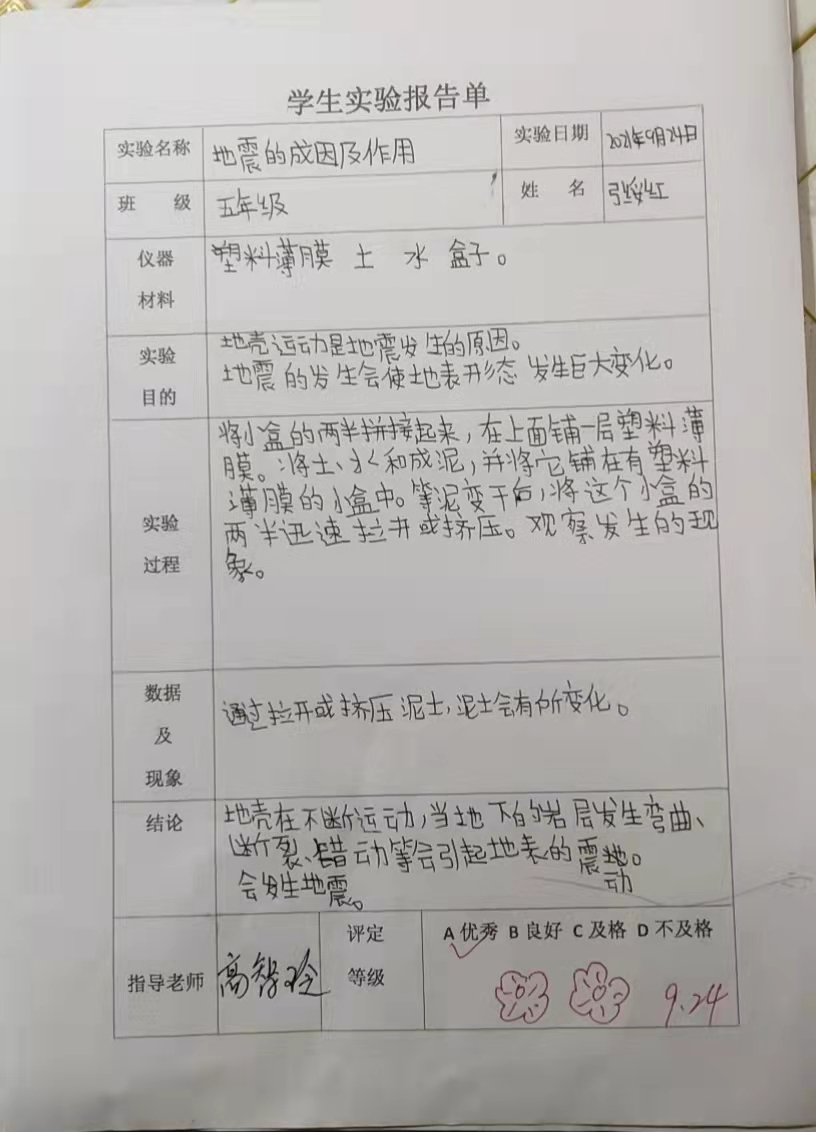 学生实验报告单
实验名称 地震的成因及作用 实验日期 2021年9月24日
班 级 五年级 姓 名 张绥红
仪器 塑料薄膜 土 水 盒子。
材料
实验 地壳运动是地震发生的原因。
目的 地震的发生会使地表形态发生巨大变化。
将小盒的两半拼接起来,在上面铺一层塑料薄
膜。将土、水和成泥,并将它铺在有塑料
薄膜的小盒中。等泥变干后,将这个小盒的
实验 两半迅速拉开或挤压。观察发生的现
过程 象。
数据
及 通过拉开或挤压泥土,泥土会有所变化。
现象
结论 地壳在不断运动,当地下的岩层发生弯曲、
断裂、错动等会引起地表的震地。
动
会发生地震。
指导老师 高智玲 评定 A优秀 B良好 C及格 D不及格
等级 9.24